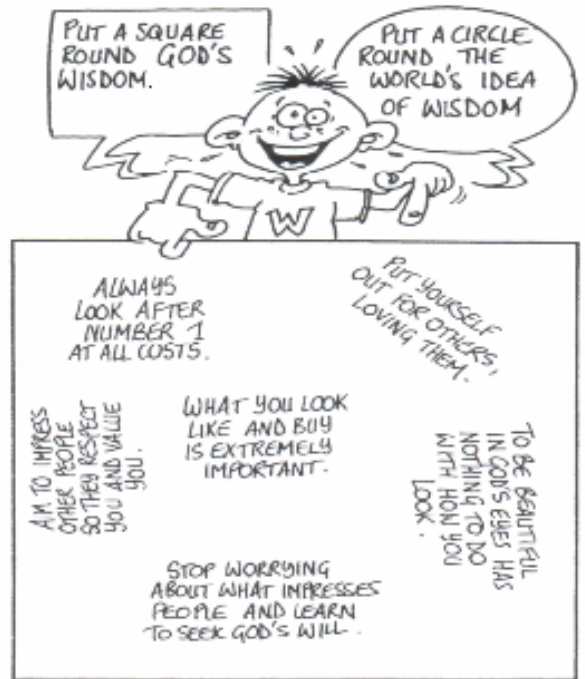 PUT A SQUARE
ROUND GOD'S
WISDOM.
PUT A CIRCLE
ROUND THE
WORLD'S IDEA
OF WISDOM
W
ALWAYS
LOOK AFTER
NUMBER 1
AT ALL COSTS.
PUT YOURSELF
OUT FOR OTHERS,
LOVING THEM.
AIM TO IMPRESS
OTHER PEOPLE
SO THEY RESPECT
YOU AND VALUE
YOU.
WHAT YOU LOOK
LIKE AND BUY
IS EXTREMELY
IMPORTANT.
TO BE BEAUTIFUL
IN GOD'S EYES HAS
NOTHING TO DO
WITH HOW YOU
LOOK.
STOP WORRYING
ABOUT WHAT IMPRESSES
PEOPLE AND LEARN
TO SEEK GOD'S WILL.